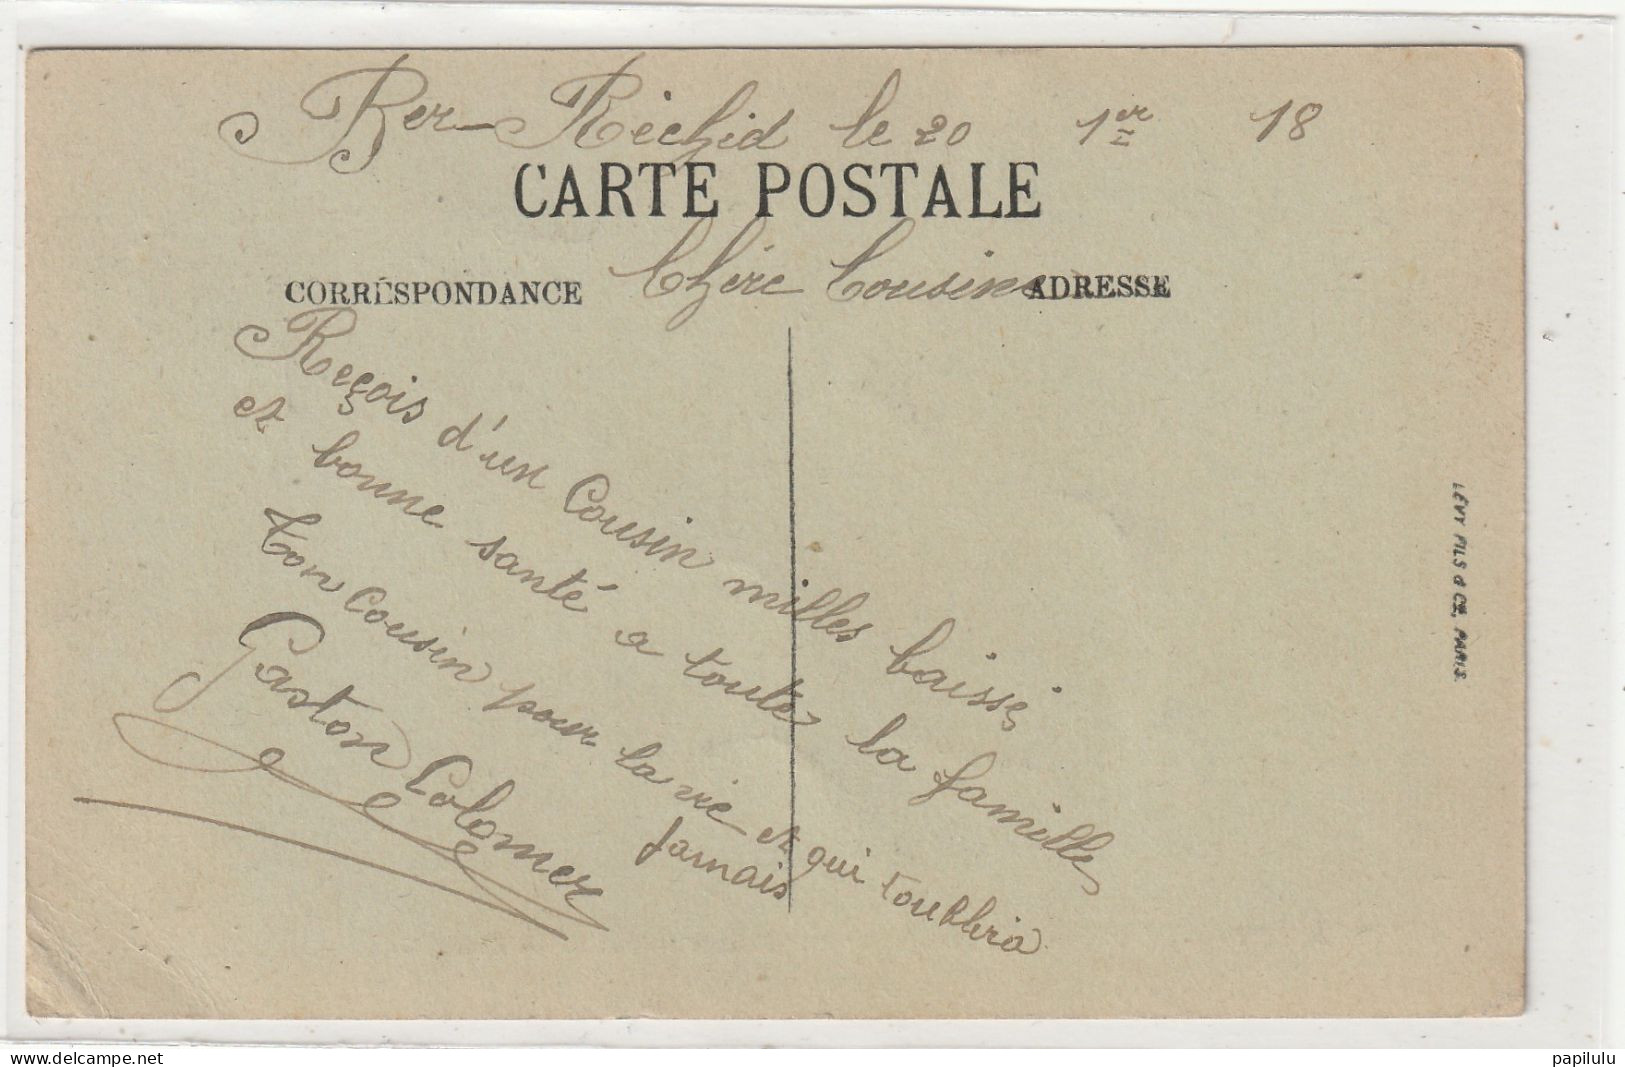 Ber-Rechid le 20 1er 18
CARTE POSTALE
CORRESPONDANCE
Chère Cousine
ADRESSE
Reçois d'un Cousin milles baisse
et bonne santé a toutes la famille
ton cousin pour la vie et qui toublira
Jamais
Gaston Colomer
LÉVY FILS & Cie, PARIS.
delcampe.net
papilulu